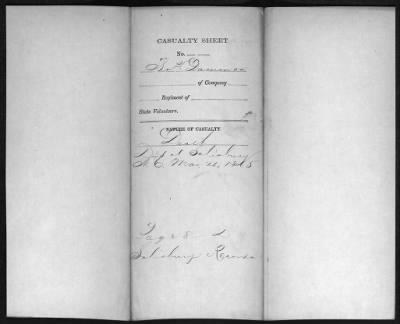 CASUALTY SHEET
No.
of Company
Regiment of
State Volunteers.
NATURE OF CASUALTY.
Death
Died at Salisbury
N. C. 1865
Page
Salisbury Records